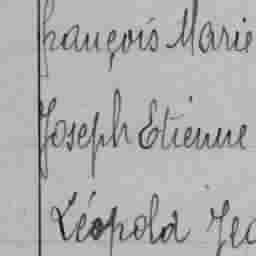 françois Marie
Joseph Etienne
Léopold Jea